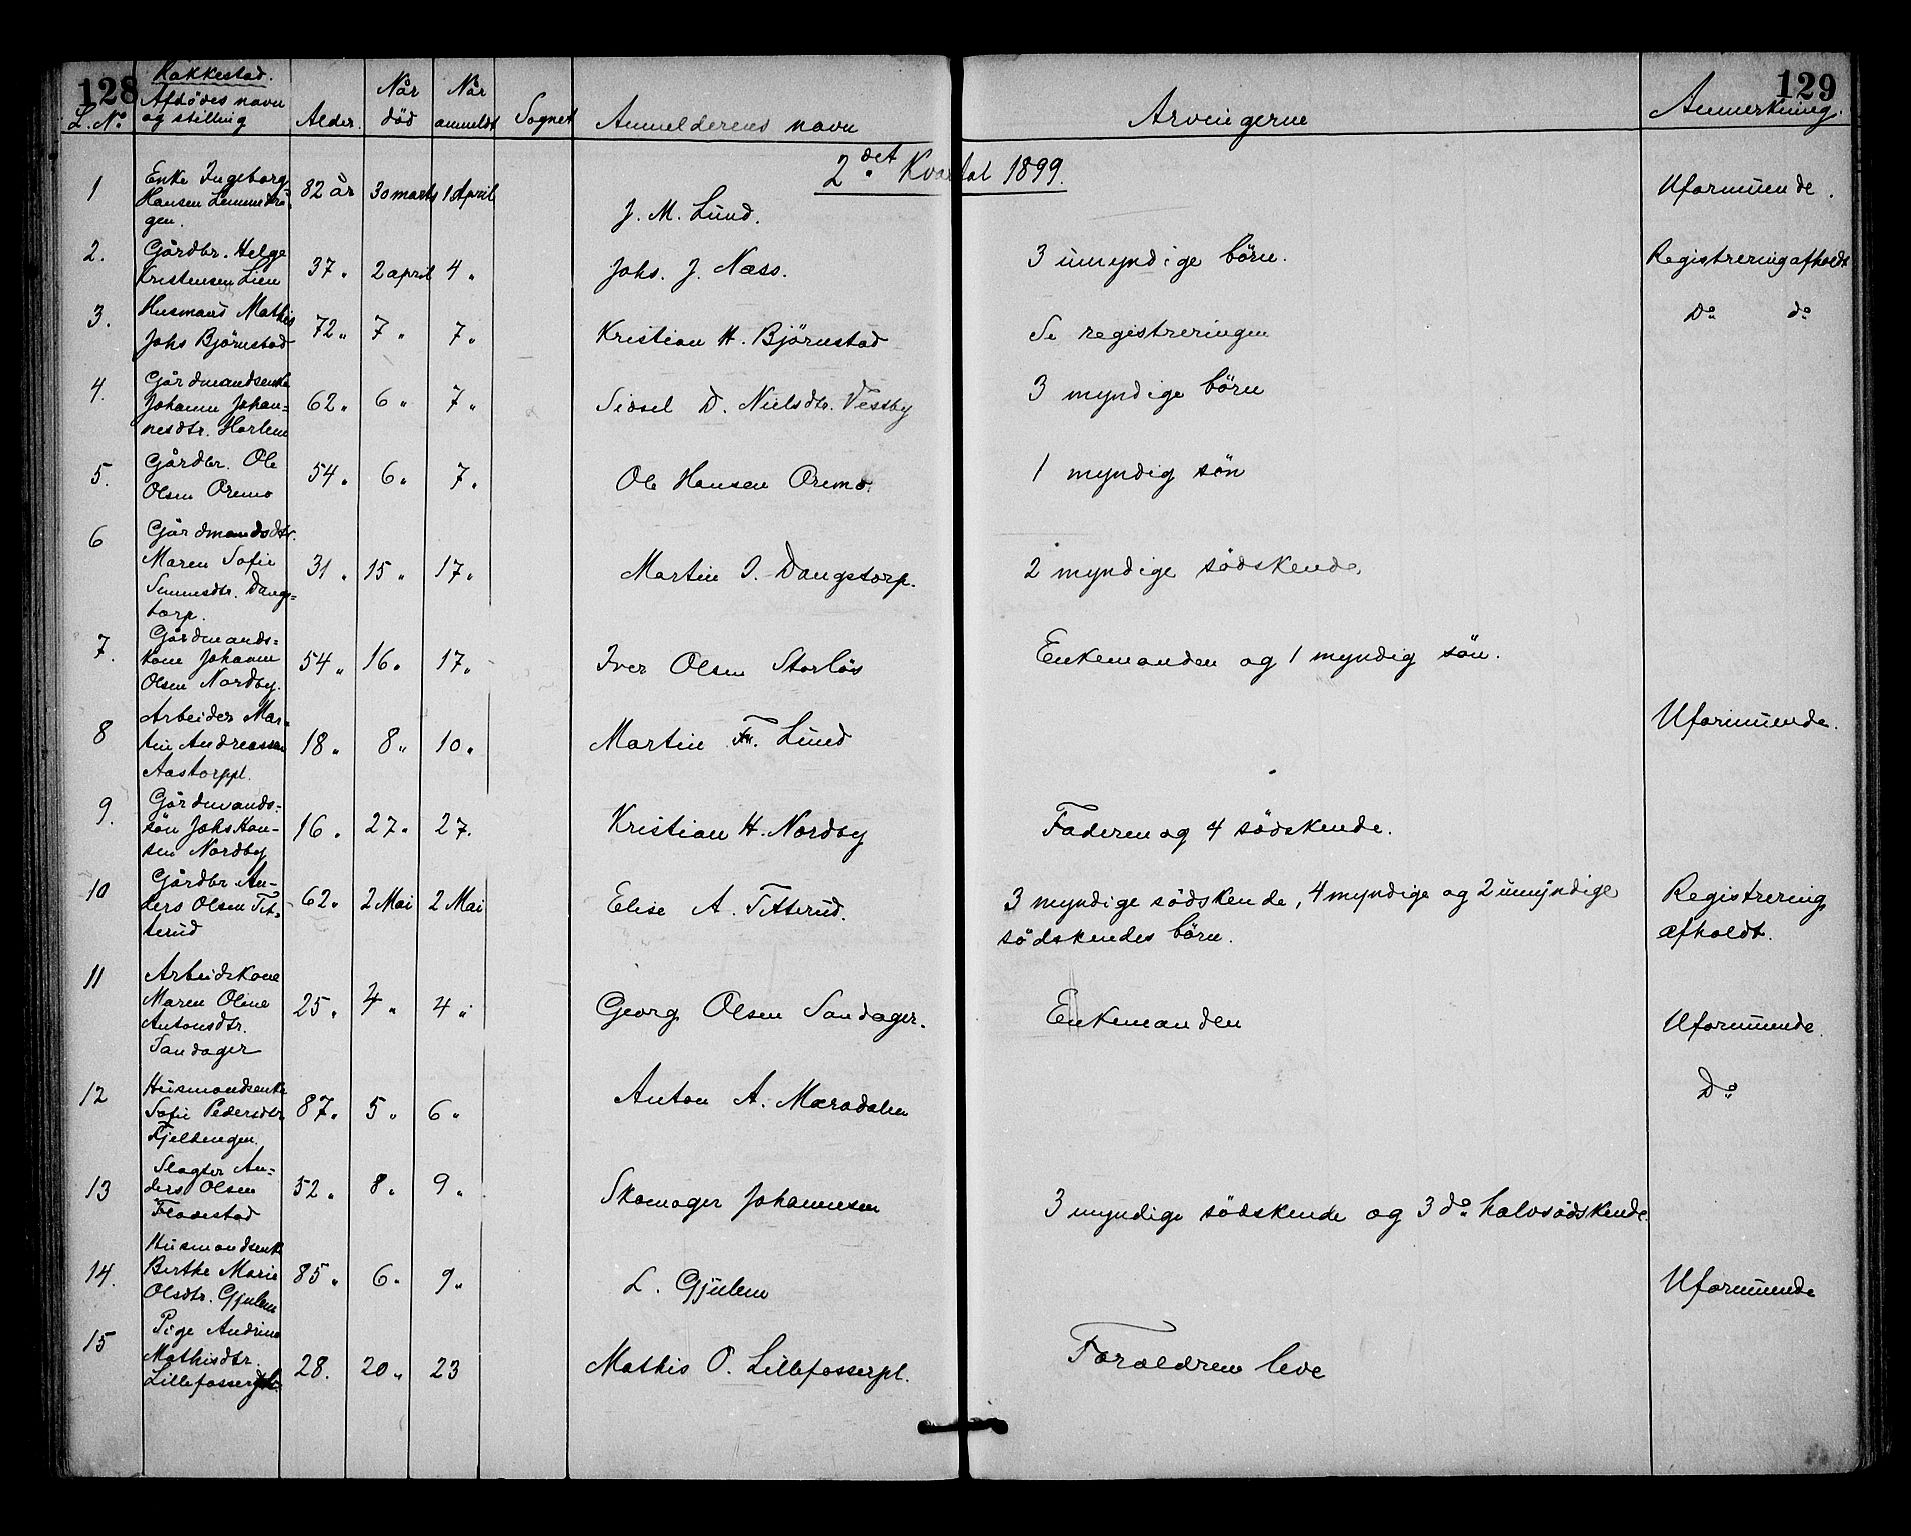 128
Rakkestad.
129
L. No
Afdödes navn og stilling
Alder.
Når död
Når anmeldt
Sognet
Anmelderens navn
Arvingerne
Anmerkning.
2det Kvartal 1899.
1
Enke Ingeborg
Hansen
gen.
82 år
30 marts
1 April
J. M. Lund.
Uformuende.
2.
Gårdbr. Helge
Kristensen Lien
37 "
2 april
4 "
Johs. J. Næss.
3 umyndige börn.
Registrering afholdt
3.
Husmand Mathis
Johs Björnstad
72 "
7 "
7 "
Kristian H. Björnstad
Se registreringen
Do do
4.
Gårdmandsenke
Johanne Johan=
nesdtr. Harlem
62 "
6 "
7 "
Sidsel D. Nielsdtr. Vestby
3 myndige börn
5.
Gårdbr. Ole
Olsen Oremo
54 "
6 "
7 "
Ole Hansen Oremo.
1 myndig sön
6
Gårdmandsdtr.
Maren Sofie
Simensdtr. Dangs=
torp.
31 "
15 "
17 "
Martin S. Dangstorp.
2 myndige södskende.
7.
Gårdmands=
kone Johanne
Olsen Nordby.
54 "
16 "
17 "
Iver Olsen Storlös
Enkemanden og 1 myndig sön.
8
Arbeider Mar=
tin Andreassen
Aastorppl.
18 "
8 "
10 "
Martin Fr. Lund
Uformuende.
9.
Gårdmands=
sön Johs Han=
sen Nordby
16 "
27 "
27.
Kristian H. Nordby
Faderen og 4 södskende.
10
Gårdbr An=
ders Olsen Tit=
terud
62 "
2 Mai
2 Mai
Elise A. Titterud.
3 myndige södskende, 4 myndige og 2 umyndige
södskendes börn.
Registrering
afholdt.
11
Arbeidskone
Maren Oline
Antonsdtr.
Sandager
25 "
4 "
4 "
Georg Olsen Sandager.
Enkemanden
Uformuende.
12
Husmandsenke
Sofie Pedersdtr
Fjeldengen.
87 "
5 "
6 "
Anton A. Mæradalen
Do
13
Slagter An=
ders Olsen
Fladestad
52 "
8 "
9 "
Skomager Johannesen
3 myndige södskende og 3 do halvsödskende.
14.
Husmandsenke
Berthe Marie
Olsdtr. Gjulem
85 "
6 "
9 "
L. Gjulem
Uformuende
15
Pige Andrine
Mathisdtr.
Lillefosserpl.
28.
20 "
23
Mathis O. Lillefosserpl.
Forældrene leve